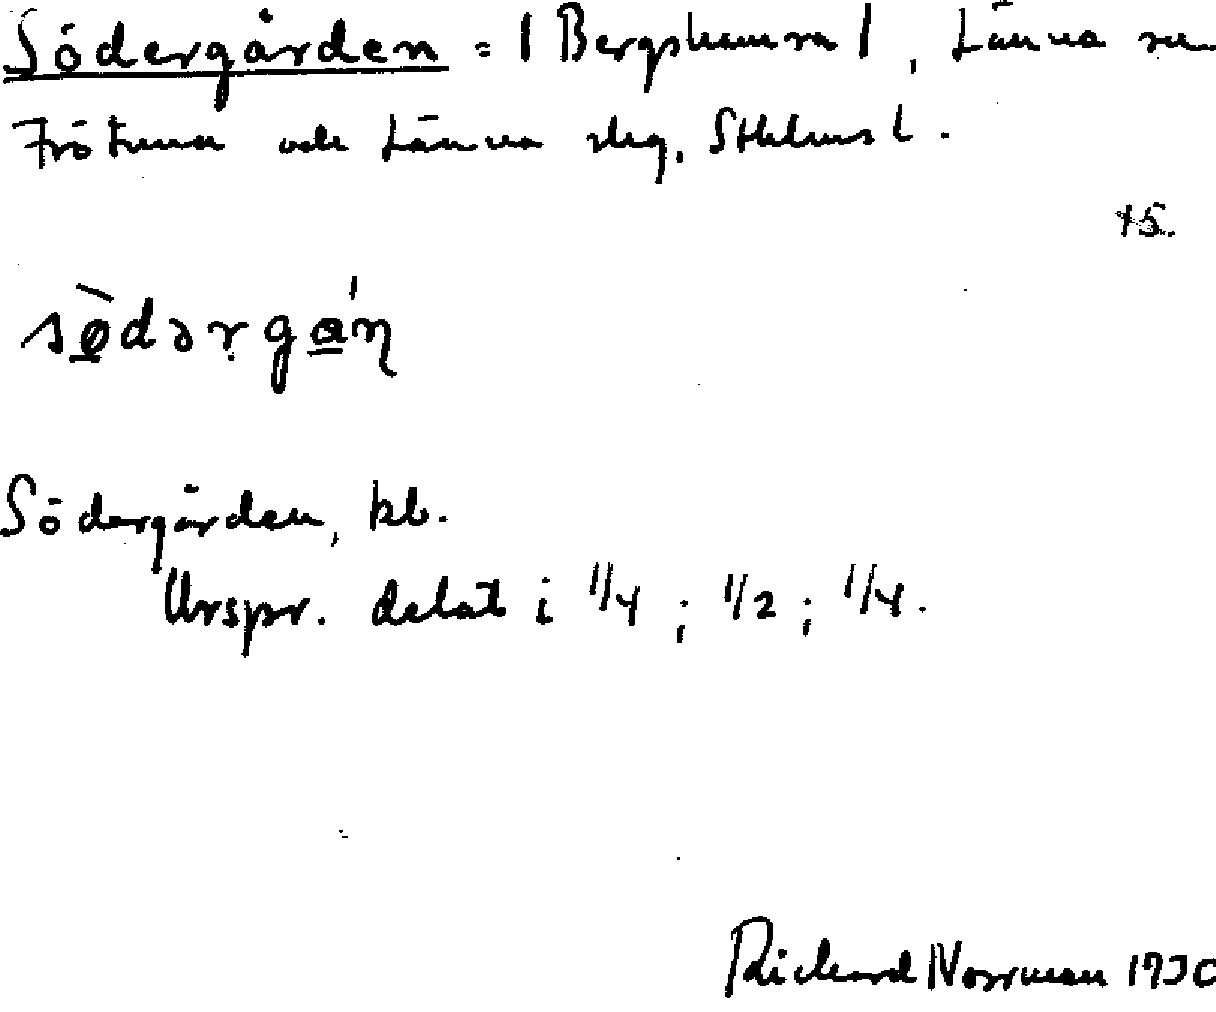 Södergården = | Bergshamra |, Länna sn
Frötuna och Länna slg, Sthlms l.
45.
sø̀dərgɑ́ꞃ
Södergården, kb.
Urspr. delat i 1/4 ; 1/2 ; 1/4.
Richard Norrman 1930